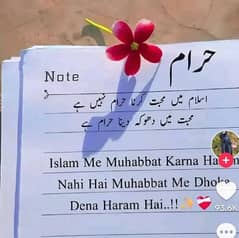 Note
حرام
اسلام میں محبت کرنا حرام نہیں ہے
محبت میں دھوکہ دینا حرام ہے
Islam Me Muhabbat Karna Ha
Nahi Hai Muhabbat Me Dhoka
Dena Haram Hai..!! ✨❤️‍🩹
93.6K